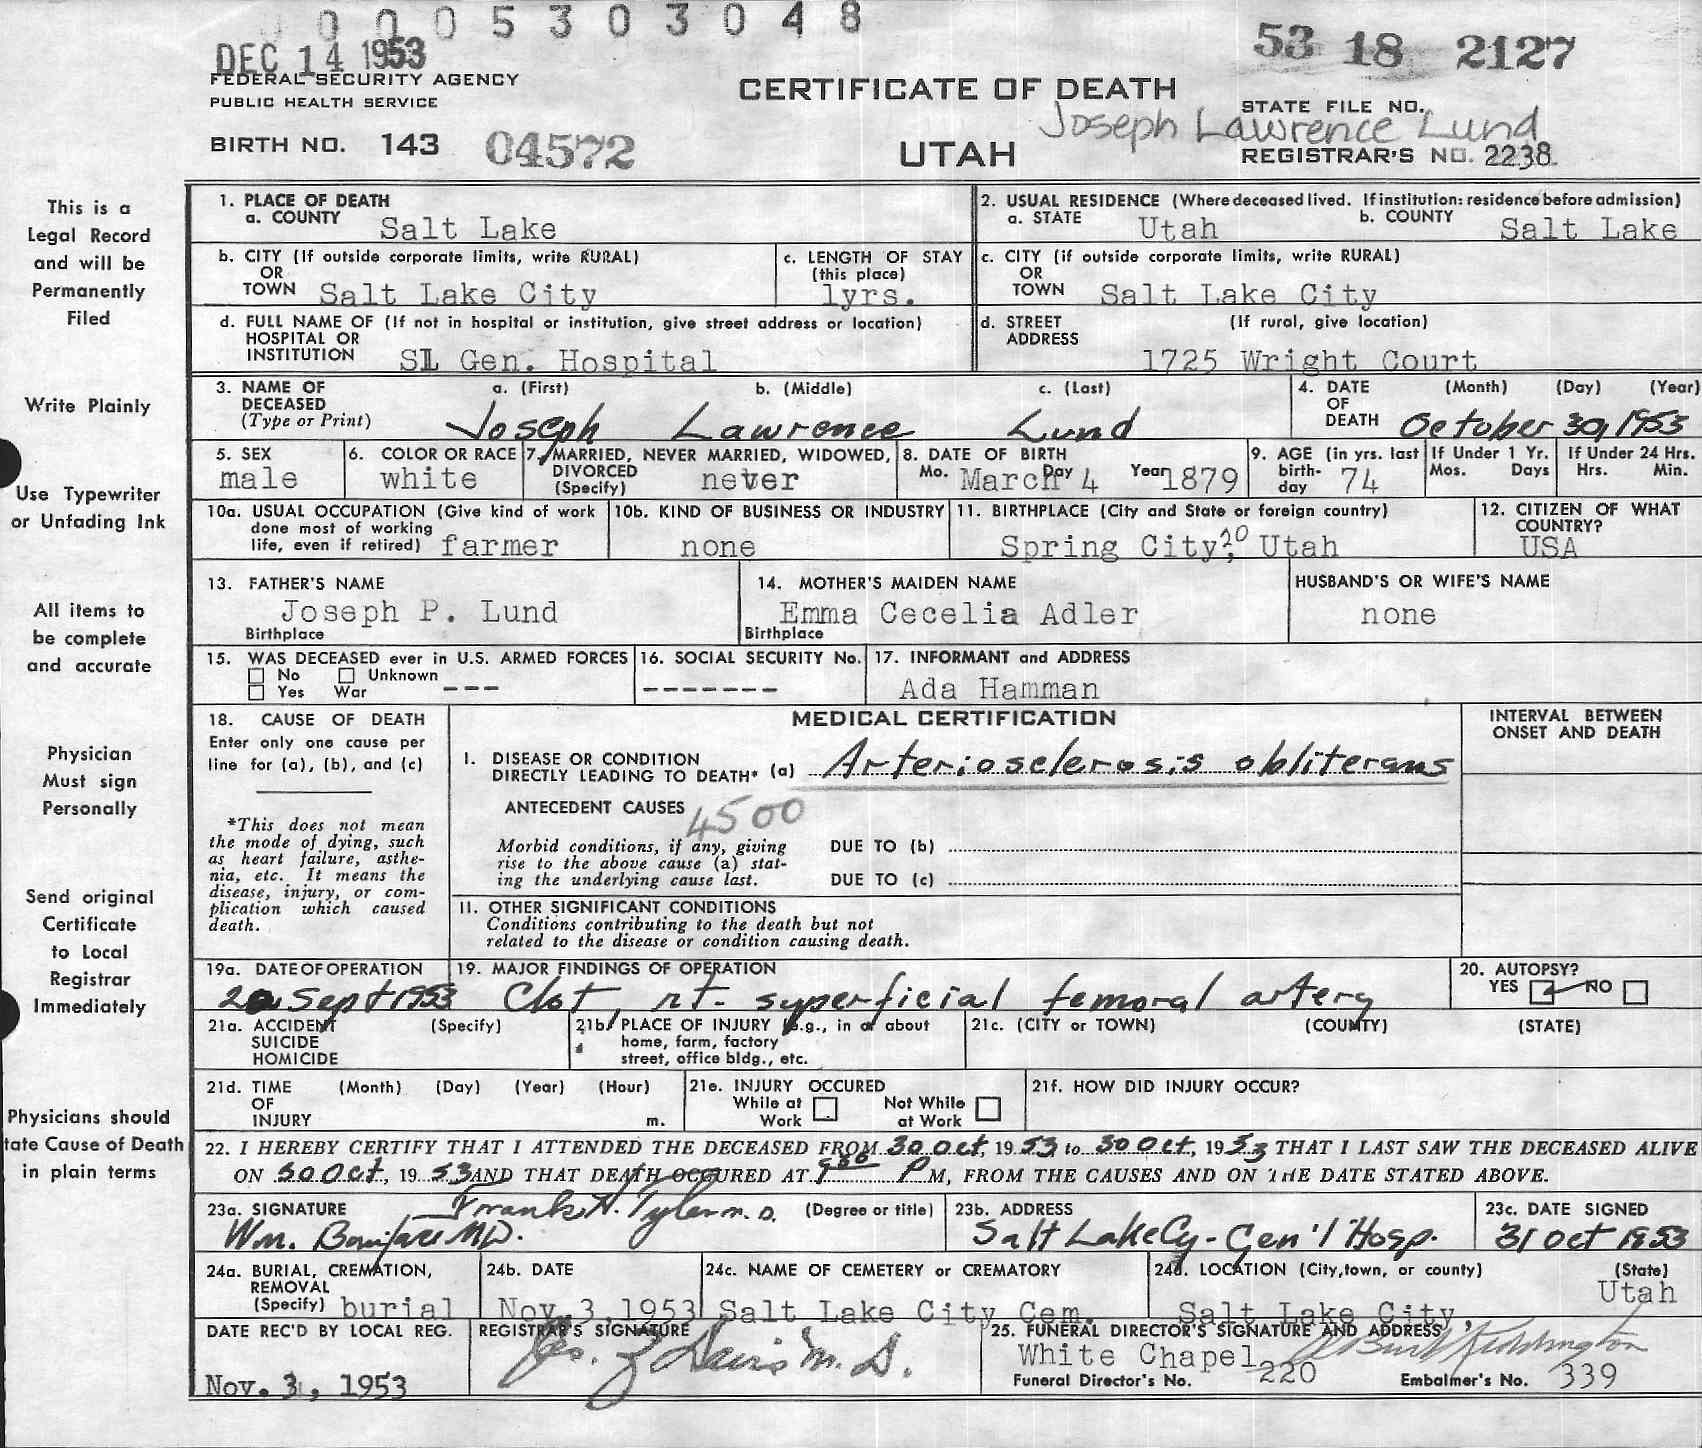 0 0 0 5 3 0 3 0 4 8
DEC 14 1953
53 18 2127
FEDERAL SECURITY AGENCY
PUBLIC HEALTH SERVICE
CERTIFICATE OF DEATH
STATE FILE NO.
Joseph Lawrence Lund
BIRTH NO. 143 04572
UTAH
REGISTRAR'S NO. 2238
This is a
Legal Record
and will be
Permanently
Filed
Write Plainly
Use Typewriter
or Unfading Ink
All items to
be complete
and accurate
Physician
Must sign
Personally
Send original
Certificate
to Local
Registrar
Immediately
Physicians should
tate Cause of Death
in plain terms
1. PLACE OF DEATH
a. COUNTY Salt Lake
2. USUAL RESIDENCE (Where deceased lived. If institution: residence before admission)
a. STATE Utah b. COUNTY Salt Lake
b. CITY (If outside corporate limits, write RURAL)
OR
TOWN Salt Lake City
c. LENGTH OF STAY
(this place)
1yrs.
c. CITY (if outside corporate limits, write RURAL)
OR
TOWN Salt Lake City
d. FULL NAME OF (If not in hospital or institution, give street address or location)
HOSPITAL OR
INSTITUTION SL Gen. Hospital
d. STREET (If rural, give location)
ADDRESS
1725 Wright Court
3. NAME OF a. (First) b. (Middle) c. (Last)
DECEASED
(Type or Print) Joseph Lawrence Lund
4. DATE (Month) (Day) (Year)
OF
DEATH October 30, 1953
5. SEX
male
6. COLOR OR RACE
white
7. MARRIED, NEVER MARRIED, WIDOWED,
DIVORCED
(Specify) never
8. DATE OF BIRTH
Mo. March Day 4 Year 1879
9. AGE (in yrs. last
birth-
day 74
If Under 1 Yr.
Mos. Days
If Under 24 Hrs.
Hrs. Min.
10a. USUAL OCCUPATION (Give kind of work
done most of working
life, even if retired) farmer
10b. KIND OF BUSINESS OR INDUSTRY
none
11. BIRTHPLACE (City and State or foreign country)
Spring City, 20 Utah
12. CITIZEN OF WHAT
COUNTRY?
USA
13. FATHER'S NAME
Joseph P. Lund
Birthplace
14. MOTHER'S MAIDEN NAME
Emma Cecelia Adler
Birthplace
HUSBAND'S OR WIFE'S NAME
none
15. WAS DECEASED ever in U.S. ARMED FORCES
No Unknown
Yes War ---
16. SOCIAL SECURITY No.
--------
17. INFORMANT and ADDRESS
Ada Hamman
18. CAUSE OF DEATH
Enter only one cause per
line for (a), (b), and (c)
*This does not mean
the mode of dying, such
as heart failure, asthe-
nia, etc. It means the
disease, injury, or com-
plication which caused
death.
MEDICAL CERTIFICATION
INTERVAL BETWEEN
ONSET AND DEATH
I. DISEASE OR CONDITION
DIRECTLY LEADING TO DEATH* (a) Arteriosclerosis obliterans
ANTECEDENT CAUSES 4500
Morbid conditions, if any, giving
rise to the above cause (a) stat-
ing the underlying cause last.
DUE TO (b)
DUE TO (c)
11. OTHER SIGNIFICANT CONDITIONS
Conditions contributing to the death but not
related to the disease or condition causing death.
19a. DATE OF OPERATION
Sept 1953
19. MAJOR FINDINGS OF OPERATION
Clot, rt. superficial femoral artery
20. AUTOPSY?
YES NO
21a. ACCIDENT (Specify)
SUICIDE
HOMICIDE
21b. PLACE OF INJURY (e.g., in or about
home, farm, factory
street, office bldg., etc.
21c. (CITY or TOWN) (COUNTY) (STATE)
21d. TIME (Month) (Day) (Year) (Hour)
OF
INJURY m.
21e. INJURY OCCURED
While at Not While
Work at Work
21f. HOW DID INJURY OCCUR?
22. I HEREBY CERTIFY THAT I ATTENDED THE DECEASED FROM 30 Oct, 1953 to 30 Oct, 1953 THAT I LAST SAW THE DECEASED ALIVE
ON 30 Oct, 1953 AND THAT DEATH OCCURED AT PM, FROM THE CAUSES AND ON THE DATE STATED ABOVE.
23a. SIGNATURE Frank H. Tyler M.D. (Degree or title)
Wm. Boniface MD.
23b. ADDRESS
Salt Lake Cy - Gen'l Hosp.
23c. DATE SIGNED
31 Oct 1953
24a. BURIAL, CREMATION,
REMOVAL
(Specify) burial
24b. DATE
Nov 3, 1953
24c. NAME OF CEMETERY or CREMATORY
Salt Lake City Cem.
24d. LOCATION (City, town, or county) (State)
Salt Lake City, Utah
DATE REC'D BY LOCAL REG.
Nov. 3, 1953
REGISTRAR'S SIGNATURE
Davis M.D.
25. FUNERAL DIRECTOR'S SIGNATURE AND ADDRESS
White Chapel
Funeral Director's No. 220 Embalmer's No. 339